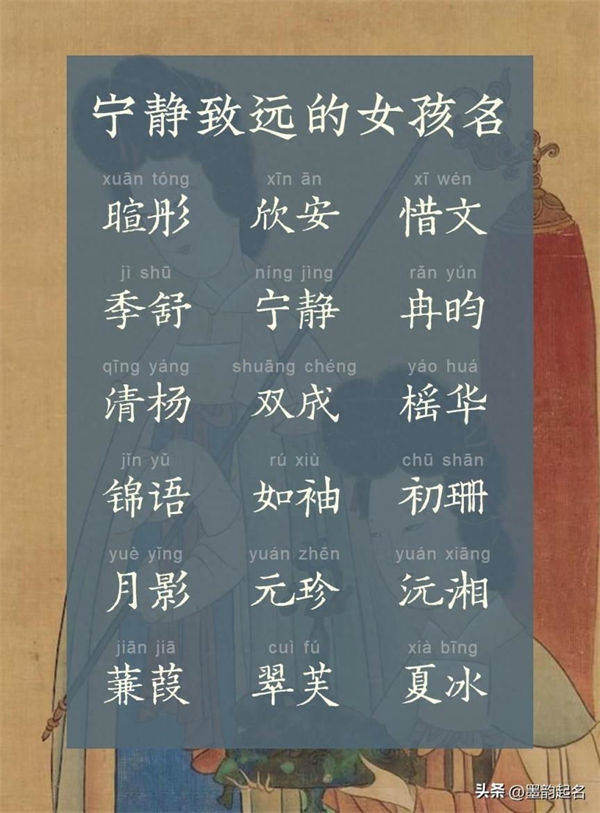 宁静致远的女孩名
xuān tóng xīn ān xī wén
暄彤 欣安 惜文
jì shū níng jìng rǎn yún
季舒 宁静 冉昀
qīng yáng shuāng chéng yáo huá
清杨 双成 榣华
jǐn yǔ rú xiù chū shān
锦语 如袖 初珊
yuè yǐng yuán zhēn yuán xiāng
月影 元珍 沅湘
jiān jiā cuì fú xià bīng
蒹葭 翠芙 夏冰
头条 @墨韵起名